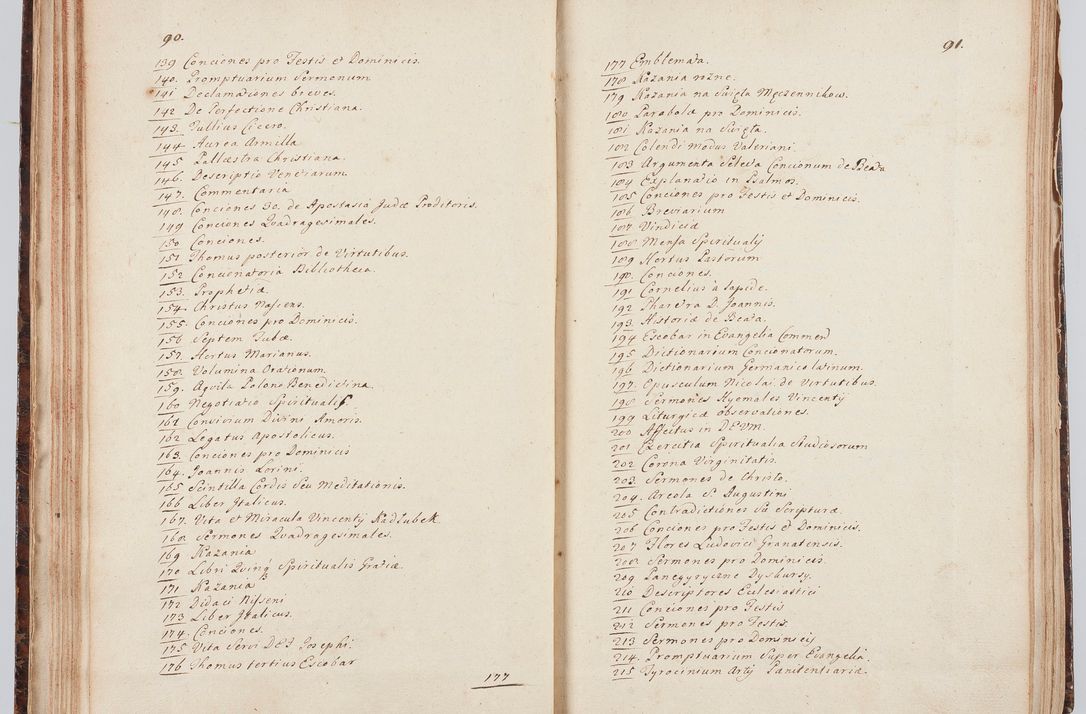 90.
139 Conciones pro Festis et Dominicis.
140. Promptuarium Sermonum
141 Declamationes breves.
142 De Perfectione Christiana.
143. Tullius Cicero.
144. Aurea Armilla
145 Pallæstra Christiana.
146. Descriptio Venetiarum
147. Commentaria
148. Conciones 30. de Apostasia Judæ Proditoris.
149 Conciones Quadragesimales.
150 Conciones.
151 Thomus posterior de Virtutibus.
152 Concionatoria Bibliotheca.
153. Prophetiæ.
154. Christus Nascens.
155. Conciones pro Dominicis.
156 Septem Tubæ.
157. Hortus Marianus.
158. Volumina Orationum.
159. Aquila Polono Benedictina.
160 Negotiatio Spiritualis
161 Divini Amoris.
162 Legatus Apostolicus.
163. Conciones pro Dominicis
164. Joannis Lorini.
165 Scintilla Cordis Seu Meditationis.
166 Liber Italicus.
167. Vita et Miracula Vincentÿ Kadłubek
168. Sermones Quadragesimales.
169 Kazania
170 Libri Spiritualis Gratiæ.
171 Kazania
172 Didaci Nisseni
173 Liber Italicus.
174. Conciones.
175 Vita Servi DEI Josephi.
176 Thomus tertius Escobar
177
91.
177 Emblemata.
178 Kazania rożne.
179 Kazania na Swięta Męczennikow.
180 Parabola pro Dominicis.
181 Kazania na Swięta.
182 Colendi modus Valeriani.
183 Argumenta Selecta Concionum de Beata
184 Explanatio in Psalmos.
185 Conciones pro Festis et Dominicis.
186 Breviarium
187 Vindiciæ
188 Mensa Spiritualÿ
189 Hortus Pastorum
190. Conciones.
191 Cornelius à Lapide.
192 Pharetra D. Joannis.
193. Historiæ de Beata.
194 Escobar in Evangelia Commen
195 Dictionarium Concionatorum.
196 Dictionarium Germanico latinum.
197. Opusculum Nicolai de Virtutibus.
198 Sermones Hyemales Vincentÿ
199 Liturgicæ observationes.
200 Affectus in DEUM.
201 Exercitia Spiritualia Studiosorum
202 Corona Virginitatis.
203. Sermones de Christo.
204. Areola S. Augustini
205 Contradictiones Sæ Scripturæ.
206 Conciones pro Festis et Dominicis.
207 Flores Ludovici Granatensis.
208. Sermones pro Dominicis.
209 Panegyryczne Dyskursy.
210 Descriptores Eclesiastici
211 Conciones pro Festis
212 Sermones pro Festis.
213 Sermones pro Dominicis
214. Promptuarium Super Evangelia.
215 Tyrocinium Artÿ Panitentiariæ